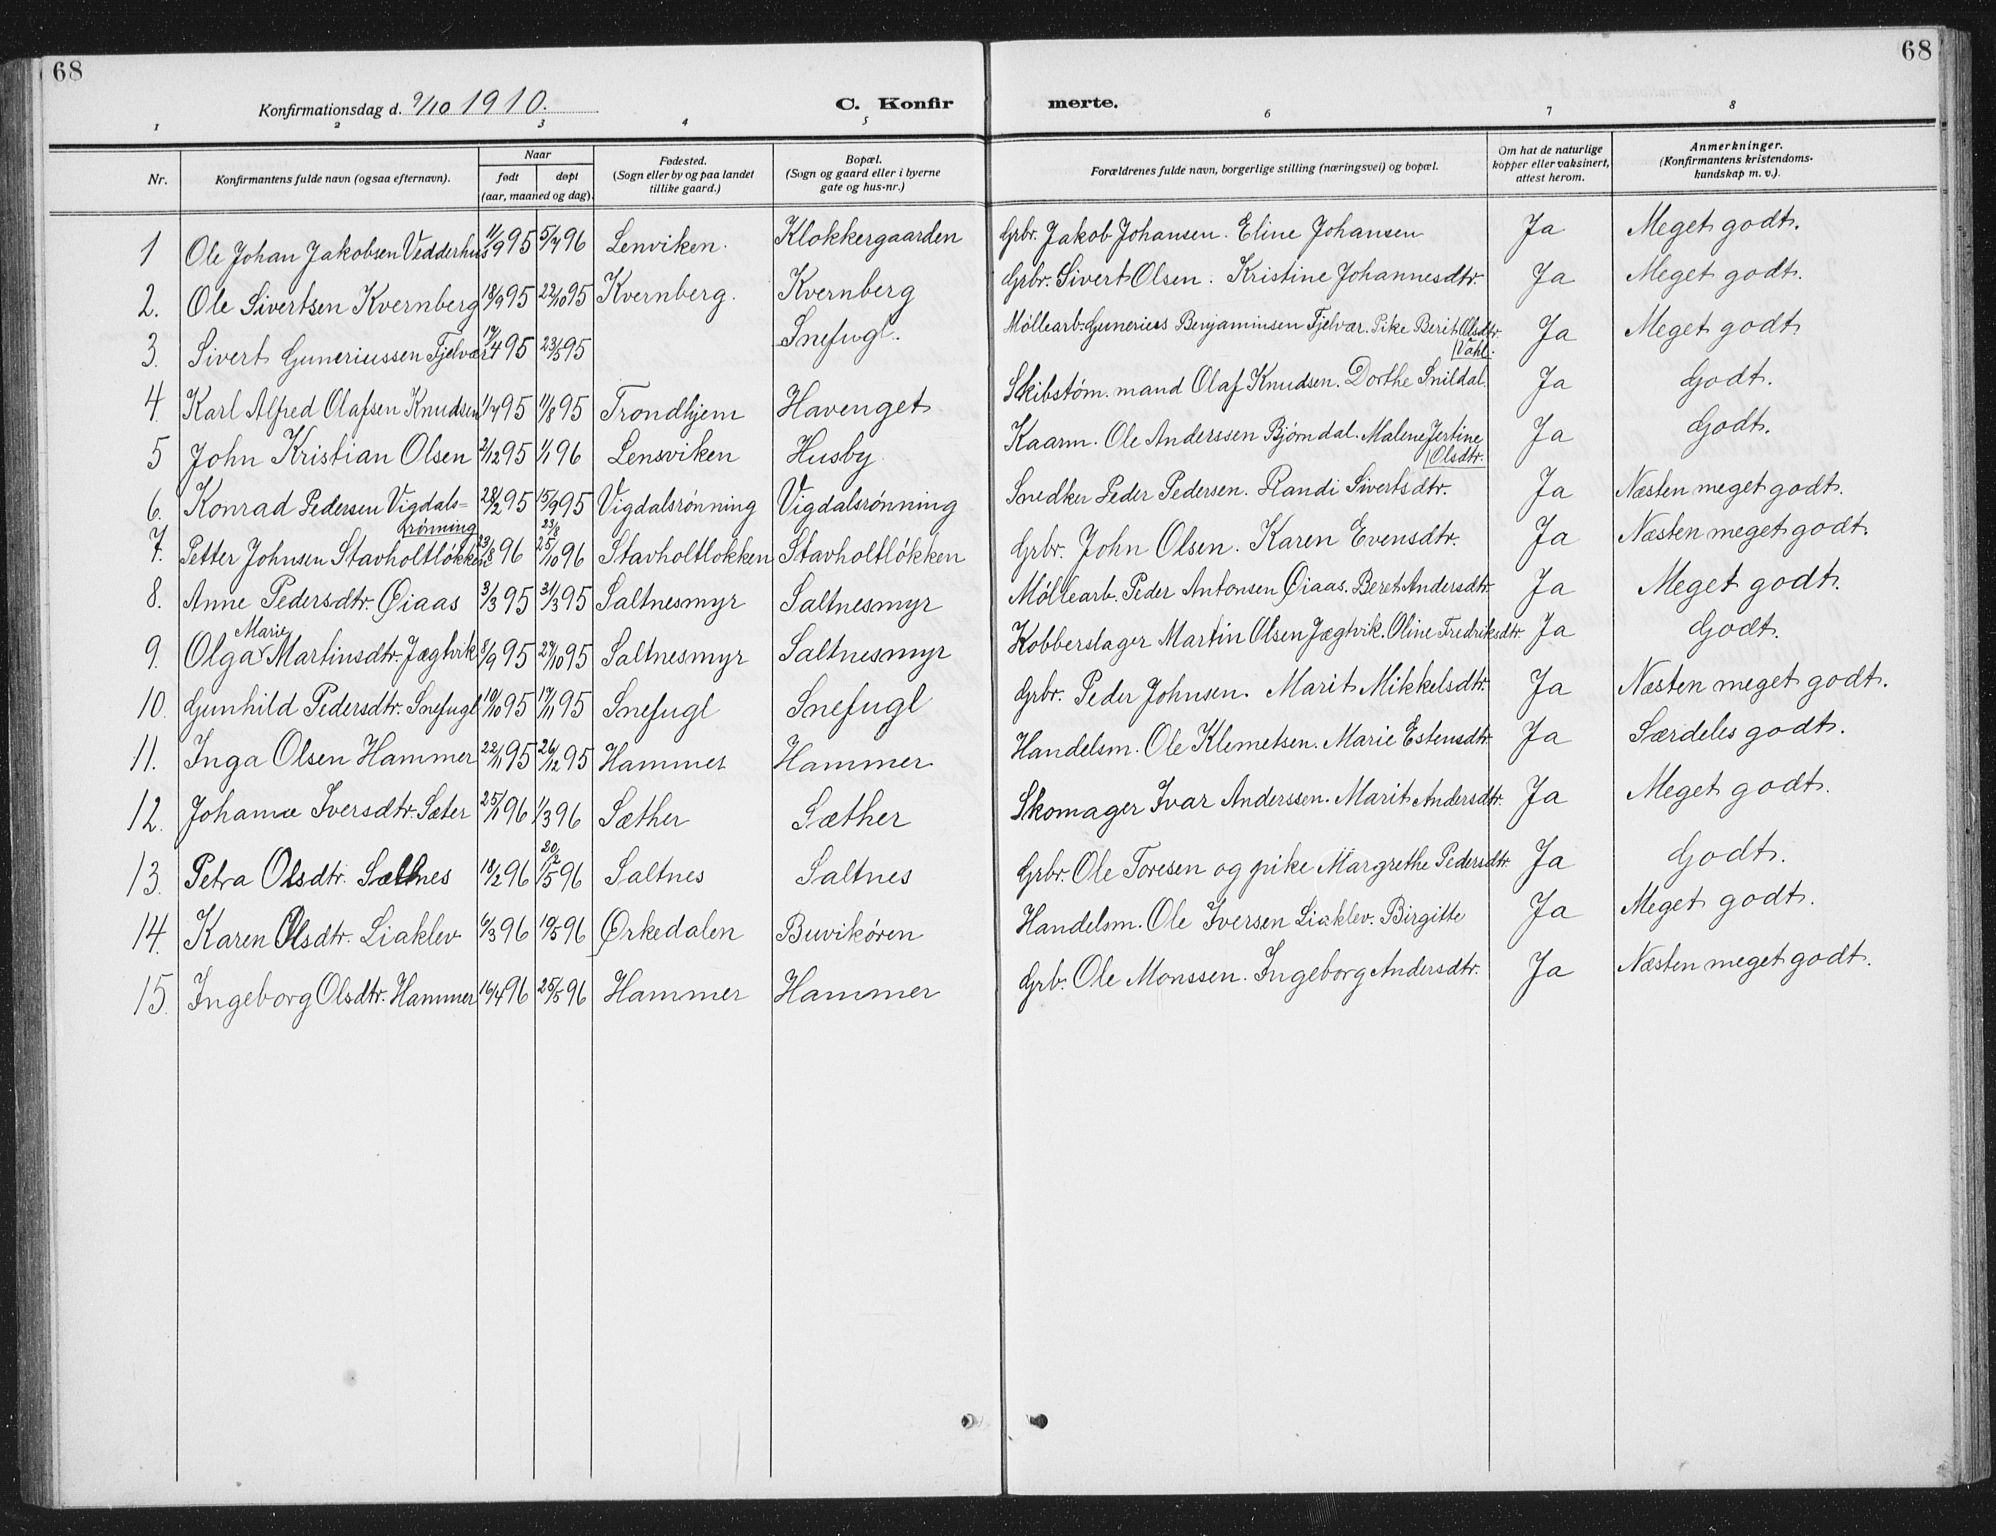 68 68
Konfirmationsdag d. 9/10 1910. C. Konfir merte.
1 2 3 4 5 6 7 8
Nr. Konfirmantens fulde navn (ogsaa efternavn). Naar født døpt (aar, maaned og dag). Fødested. (Sogn eller by og paa landet tillike gaard.) Bopæl. (Sogn og gaard eller i byerne gate og hus-nr.) Forældrenes fulde navn, borgerlige stilling (næringsvei) og bopæl. Om hat de naturlige kopper eller vaksinert, attest herom. Anmerkninger. (Konfirmantens kristendoms-kundskap m. v.).
1 Ole Johan Jakobsen Vedderhus 11/9 95 5/7 96 Lenviken. Klokkergaarden Grbr. Jakob Johansen. Eline Johansen Ja Meget godt.
2. Ole Sivertsen Kvernberg 18/9 95 22/10 95 Kvernberg. Kvernberg Grbr. Sivert Olsen. Kristine Johannesdtr. Ja Meget godt.
3. Sivert Guneriussen Fjelvær 4 95 23/5 95 Snefugl. Møllearb. Gunerius Benjaminsen Fjelvar. Pike Berit Olsdtr. Vahl. Ja Meget godt
4. Karl Alfred Olafsen Knudsen 1/7 95 11/8 95 Trondhjem Havenget Skibstøm. mand Olaf Knudsen. Dorthe Snildal. Ja Godt.
5 John Kristian Olsen 2/12 95 1/1 96 Lensviken Husby Kaarm. Ole Anderssen Bjørndal. Malene Jertine Olsdtr. Ja Godt.
6. Konrad Pedersen Vigdals-rønning 28/2 95 15/9 95 Vigdalsrønning Vigdalsrønning Snedker Peder Pedersen. Randi Sivertsdtr. Ja Næsten meget godt.
7. Petter Johnsen Stavholtløkken 23/8 96 23/8 25/10 96 Stavholtløkken Stavholtløkken Grbr. John Olsen. Karen Evensdtr. Ja Næsten meget godt.
8. Anne Pedersdtr. Øiaas 3/3 95 31/3 95 Saltnesmyr Saltnesmyr Møllearb. Peder Antonsen Øiaas. Beret Andersdtr. Ja Meget godt.
9. Olga Marie Martinsdtr. Jægtvik 8/9 95 27/10 95 Saltnesmyr Saltnesmyr Kobberslager Martin Olsen Jægtvik. Oline Fredriksdtr. Ja Godt.
10. Gunhild Pedersdtr. Snefugl 10/10 95 17/11 95 Snefugl Snefugl Grbr. Peder Johnsen. Marit Mikkelsdtr. Ja Næsten meget godt.
11. Inga Olsen Hammer 22/11 95 26/12 95 Hammer Hammer Handelsm. Ole Klemetsen. Marie Estensdtr. Ja Særdeles godt.
12. Johanne Iversdtr. Sæter 25/1 96 1/3 96 Sæther Sæther Skomager Ivar Anderssen. Marit Andersdtr. Ja Meget godt.
13. Petra Olsdtr. Saltnes 18/2 96 20/2 1/5 96 Saltnes Saltnes Grbr. Ole Toresen og pike Margrethe Pedersdtr Ja Godt.
14. Karen Olsdtr. Liaklev 6/3 96 10/5 96 Ørkedalen Buvikøren Handelsm. Ole Iversen Liaklev. Birgitte Ja Meget godt.
15. Ingeborg Olsdtr. Hammer 16/4 96 25/5 96 Hammer Hammer Grb. Ole Monssen. Ingeborg Andersdtr. Ja Næsten meget godt.